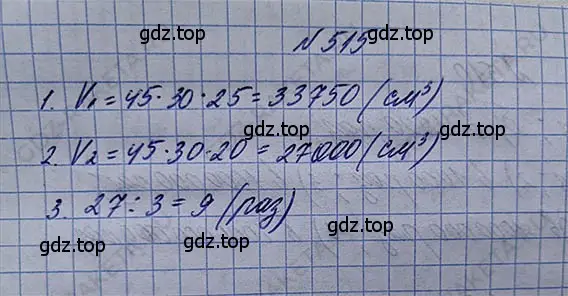 gdz.top
N 515
gdz.top
1. V₁ = 45·30·25 = 33750 (см³)
gdz.top
2. V₂ = 45·30·20 = 27000 (см³)
gdz.top
3. 27 : 3 = 9 (раз)
gdz.top
gdz.top
gdz.top